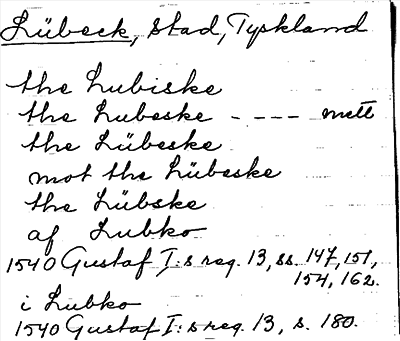 Lübeck, stad, Tyskland
the Lubiske
the Lubeske - - - - mett
the Lübeske
mot the Lübeske
the Lübske
af Lubko
1540 Gustaf I:s reg. 13, ss. 147, 151,
154, 162.
i Lubko
1540 Gustaf I:s reg. 13, s. 180.